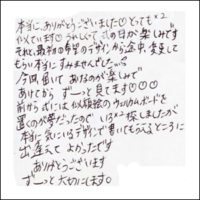 本当に、ありがとうございました♡とっても♡♡
似ています♡うれしくて式の日が楽しみです
それと、最初の希望のデザインから途中、変更して
もらい本当にすみませんでした。
今回届いて あけるのが楽しみで
あけてから ずーっと見てます♡♡♡
前から式には似顔絵のウェルカムボードを
置くのが夢だったので いろいろ探しましたが
本当に気にいるデザインで書いてもらえるところに
出逢えて よかったです
ありがとうございます
ずーっと大切にします。